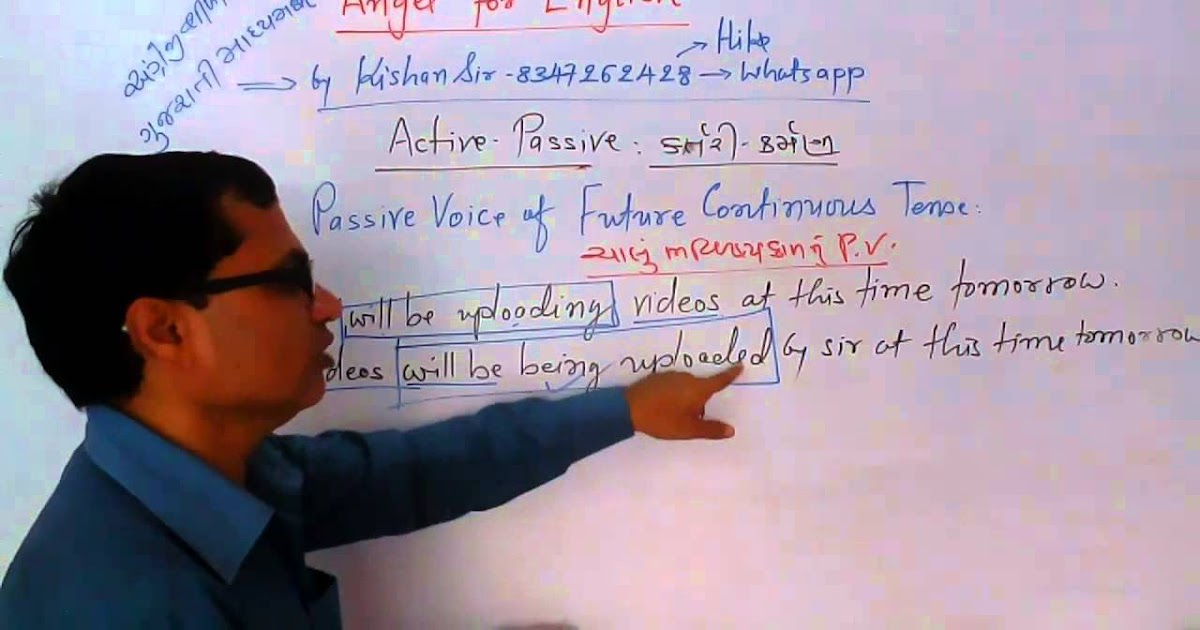 Angel for English
ગુજરાતી માધ્યમના
→ Hike
⇒ by Kishan Sir - 8347262428 → Whatsapp
Active - Passive : કર્તરી - કર્મણી
Passive Voice of Future Continuous Tense:
ચાલુ ભવિષ્યકાળનું P.V.
will be uploading videos at this time tomorrow.
deos will be being uploaded by sir at this time tomorrow